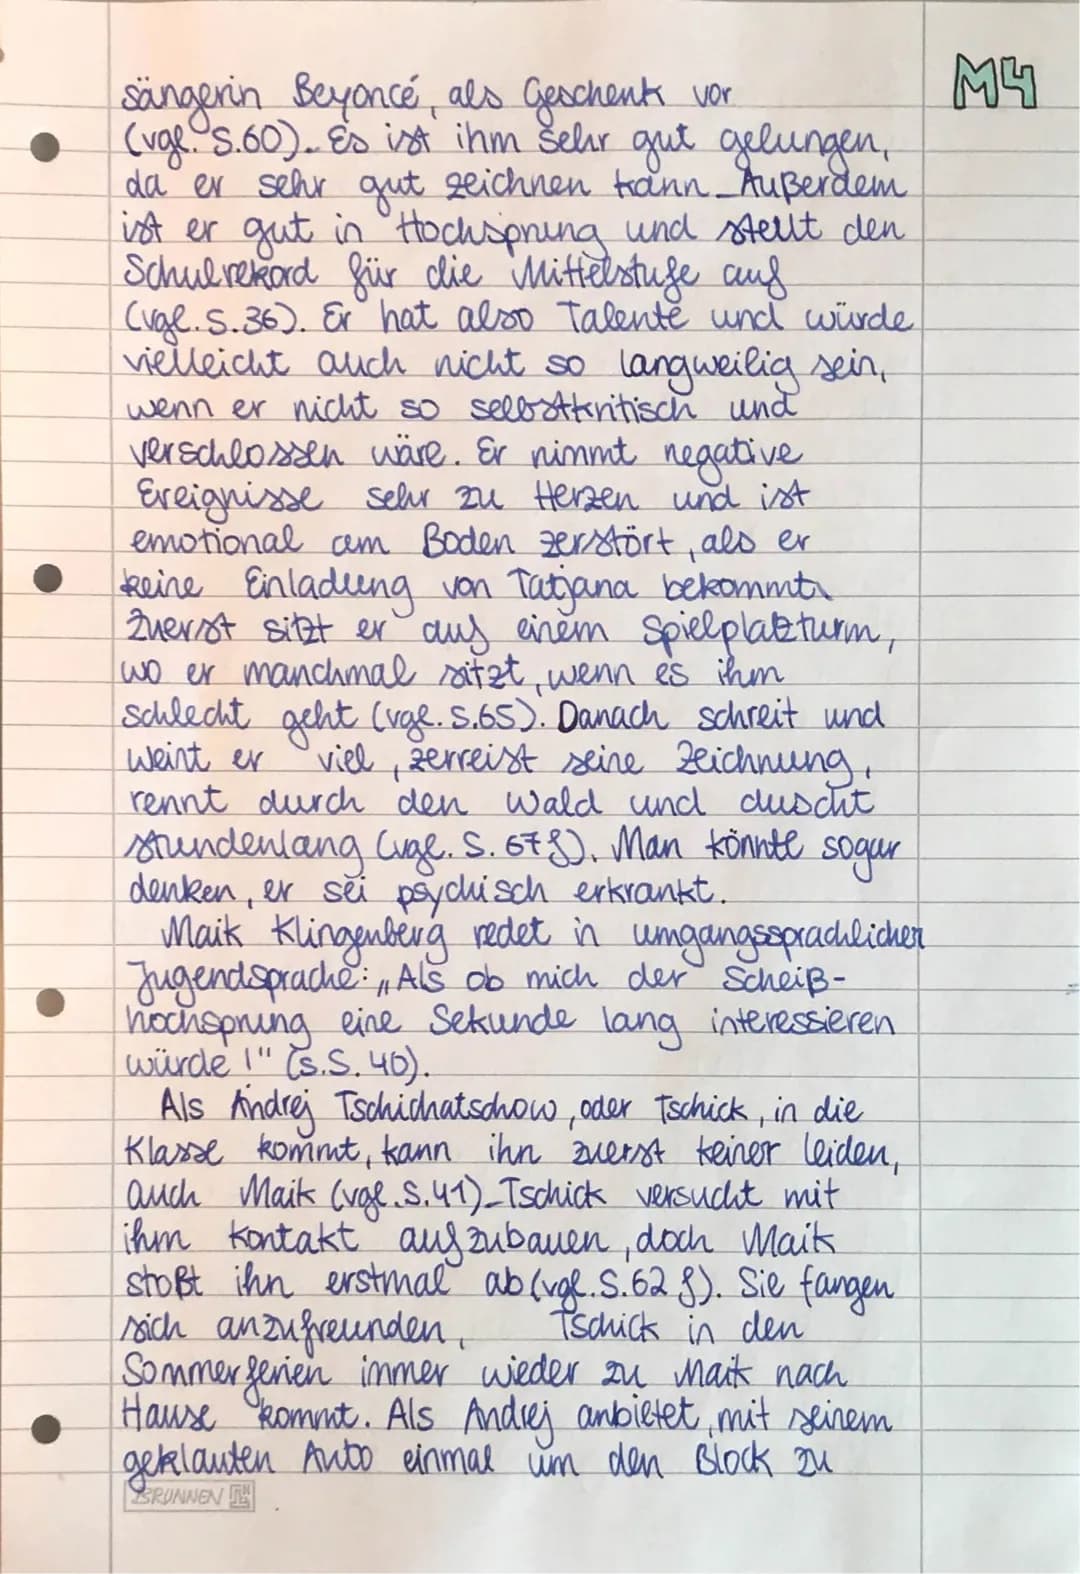 M4
sängerin Beyoncé, als Geschenk vor
(vgl. S.60). Es ist ihm sehr gut gelungen,
da er sehr gut zeichnen kann. Außerdem
ist er gut in Hochsprung und stellt den
Schulrekord für die Mittelstufe auf
(vgl. S.36). Er hat also Talente und würde
vielleicht auch nicht so langweilig sein,
wenn er nicht so selbstkritisch und
verschlossen wäre. Er nimmt negative
Ereignisse sehr zu Herzen und ist
emotional am Boden zerstört, als er
keine Einladung von Tatjana bekommt.
Zuerst sitzt er auf einem Spielplatzturm,
wo er manchmal sitzt, wenn es ihm
schlecht geht (vgl. S.65). Danach schreit und
weint er viel, zerreist seine Zeichnung,
rennt durch den Wald und duscht
stundenlang (vgl. S. 67f). Man könnte sogar
denken, er sei psychisch erkrankt.
Maik Klingenberg redet in umgangssprachlicher
Jugendsprache: „Als ob mich der Scheiß-
hochsprung eine Sekunde lang interessieren
würde!" (s.S. 40).
Als Andrej Tschichatschow, oder Tschick, in die
Klasse kommt, kann ihn zuerst keiner leiden,
auch Maik (vgl. S.41). Tschick versucht mit
ihm Kontakt aufzubauen, doch Maik
stoßt ihn erstmal ab (vgl. S.62 f). Sie fangen
sich anzufreunden, Tschick in den
Sommerferien immer wieder zu Maik nach
Hause kommt. Als Andrej anbietet, mit seinem
geklauten Auto einmal um den Block zu
BRUNNEN